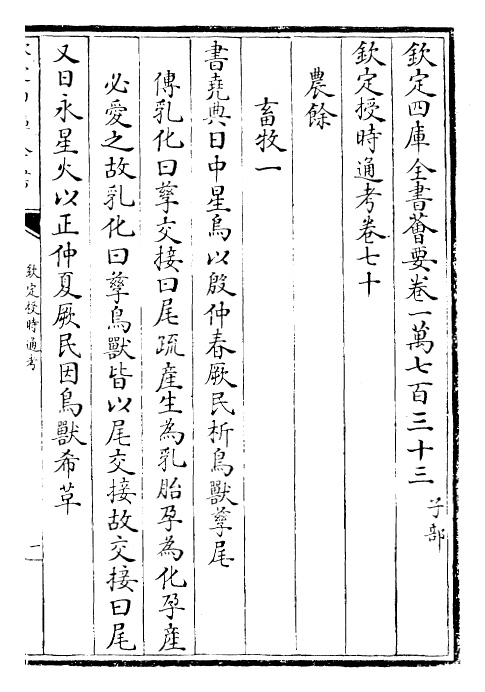 欽定四庫全書薈要卷一萬七百三十三 子部
欽定授時通考卷七十
農餘
畜牧一
書堯典日中星鳥以殷仲春厥民析鳥獸孳尾
傳乳化曰孳交接曰尾疏産生為乳胎孕為化孕産
必愛之故乳化曰孳鳥獸皆以尾交接故交接曰尾
又日永星火以正仲夏厥民因鳥獸希革
欽定授時通考
一